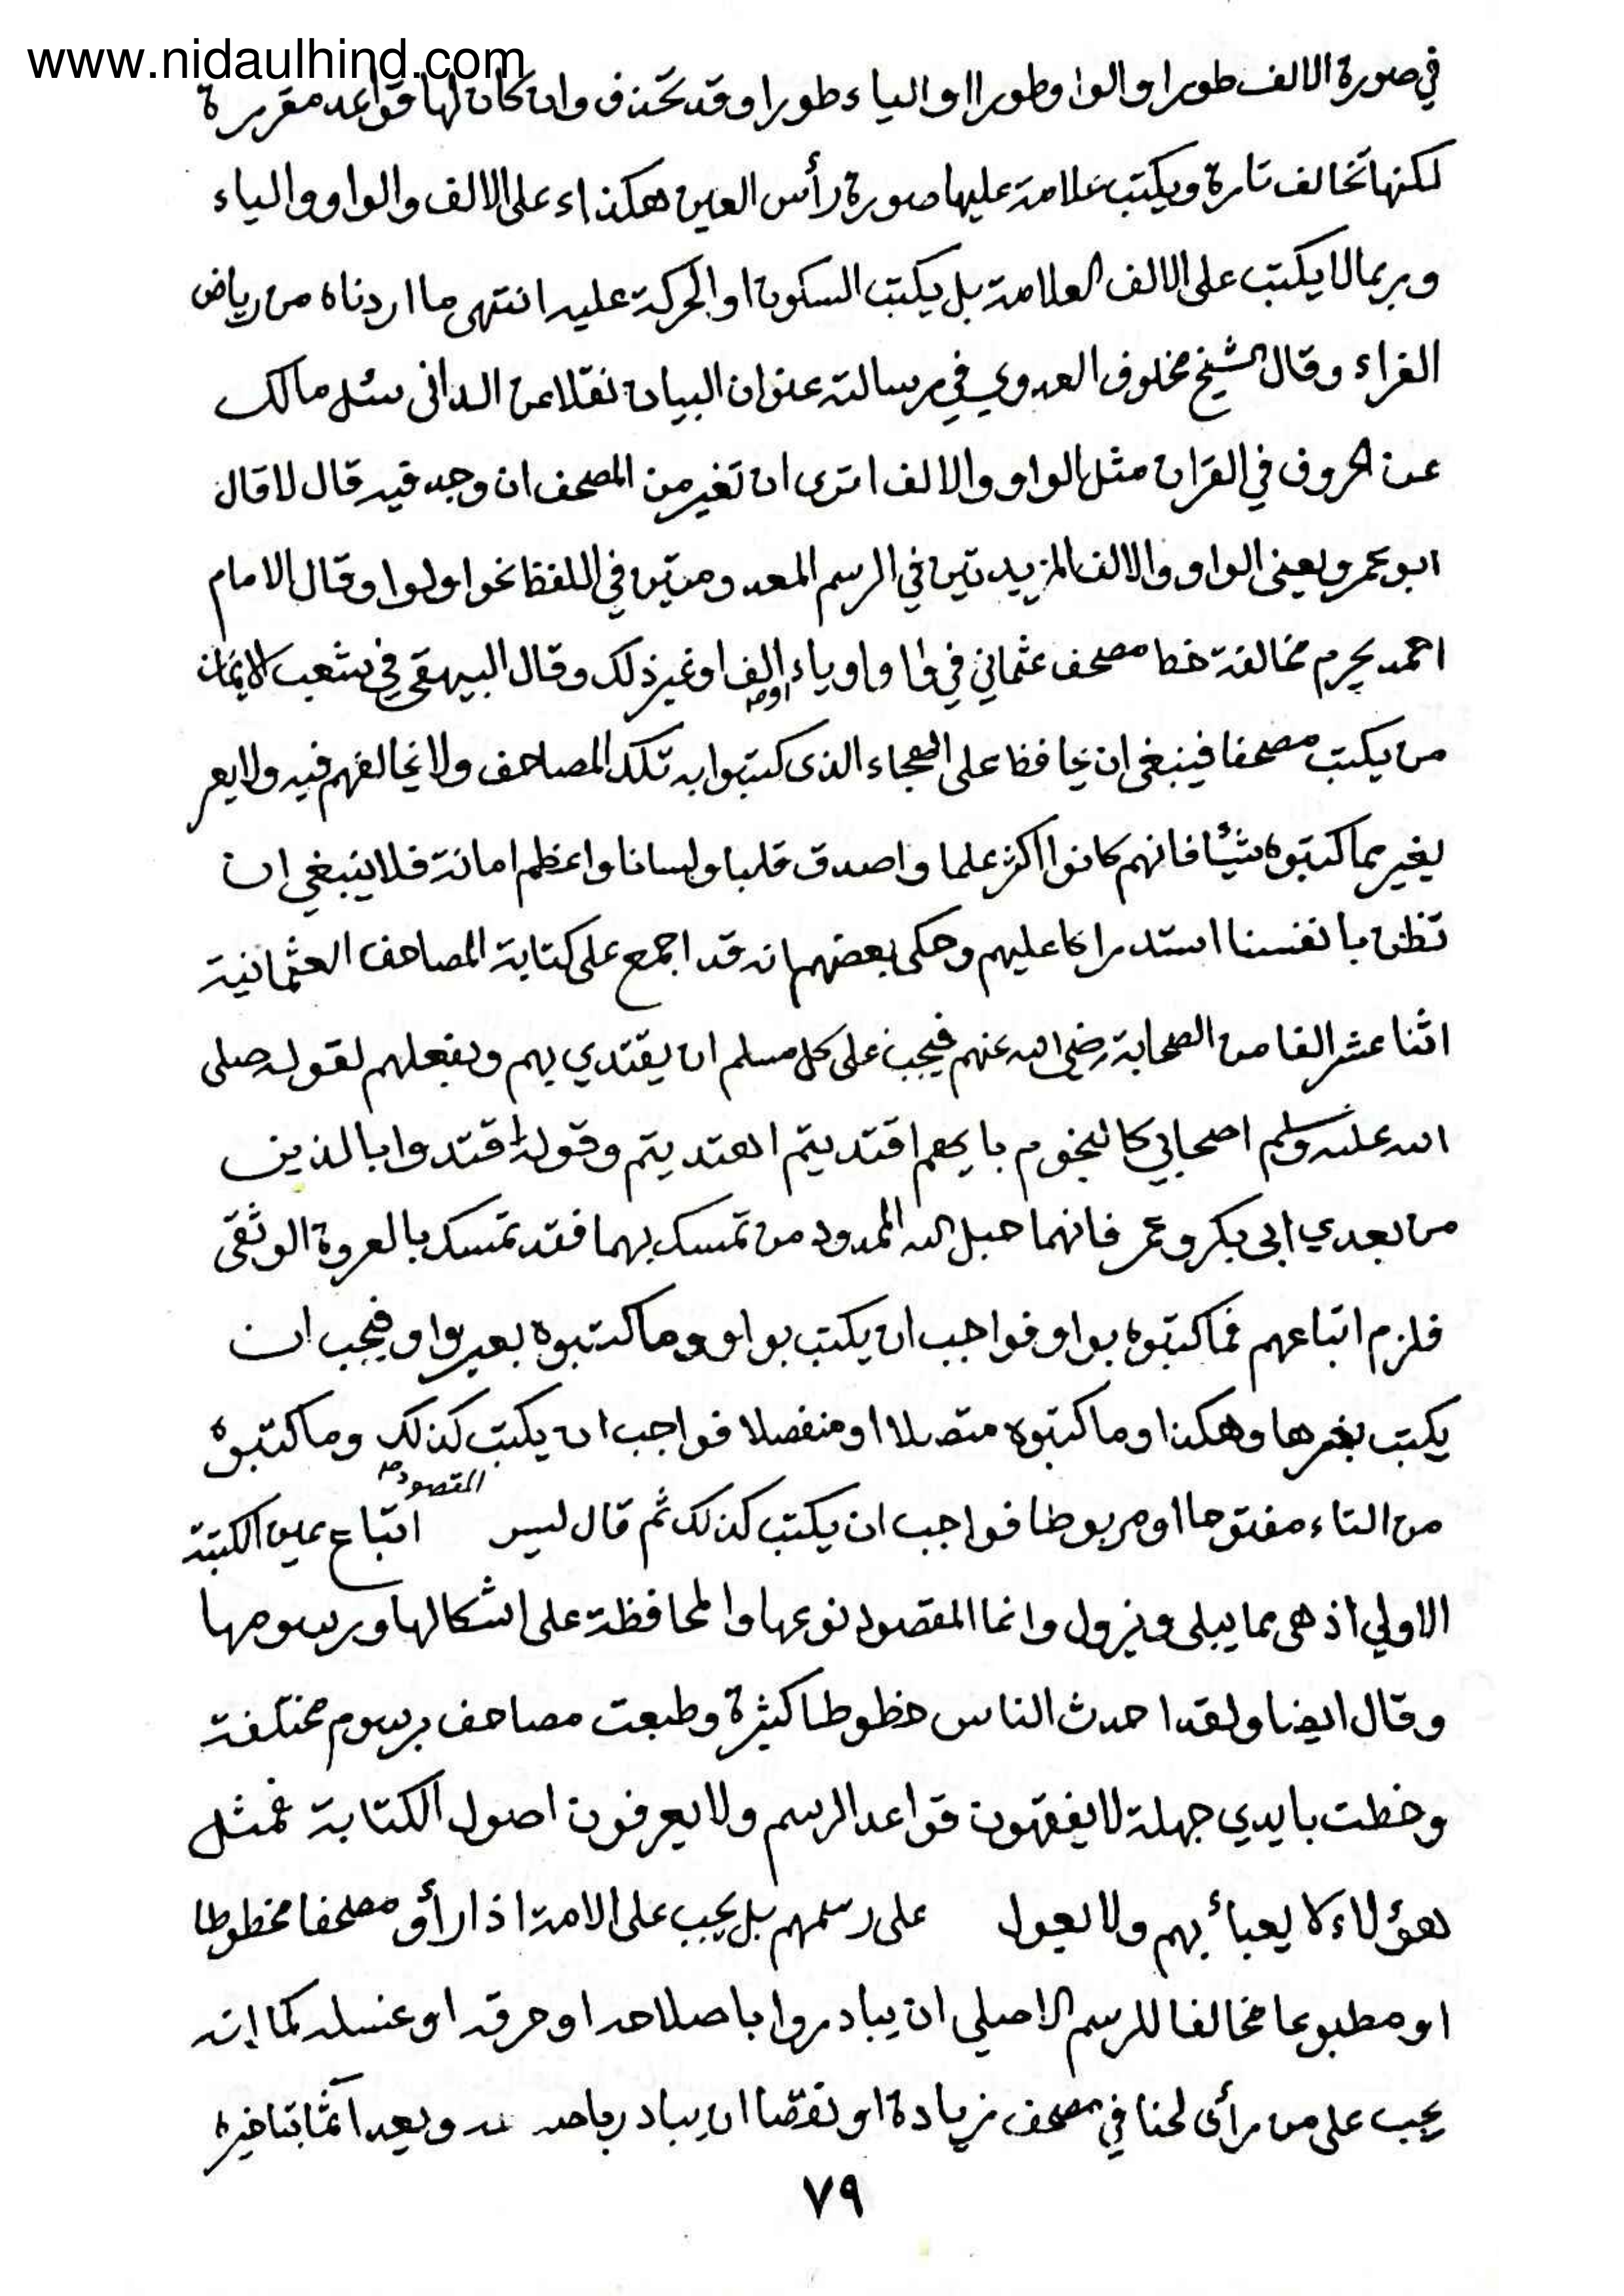 www.nidaulhind.com
في صورة الالف طورا والواو طورا او الياء طورا وقد تحذف وان كان لها قواعد مقررة
لكنها تخالف تارة ويكتب علامة عليها صورة رأس العين هكذا ء على الالف والواو والياء
وربما لا يكتب على الالف العلامة بل يكتب السكون او الحركة عليه انتهى ما اردناه من رياض
القراء وقال الشيخ مخلوف العدوي في رسالته عنوان البيان نقلا عن الداني سئل مالك
عن الحروف في القران مثل الواو والالف اترى ان تغير من المصحف ان وجد فيه قال لا قال
ابو عمرو يعنى الواو والالف المزيدتين في الرسم المعدومتين في اللفظ نحو اولوا وقال الامام
احمد يحرم مخالفة خط مصحف عثماني في واو او ياء او الف او غير ذلك وقال البيهقي في شعب الايمان
من يكتب مصحفا فينبغى ان يحافظ على الهجاء الذى كتبوا به تلك المصاحف ولا يخالفهم فيه ولا يعر
يغير مما كتبوه شيئا فانهم كانوا اكثر علما واصدق قلبا ولسانا واعظم امانة فلا ينبغي ان
تظن بانفسنا استدراكا عليهم وحكى بعضهم انه قد اجمع على كتابة المصاحف العثمانية
اثنا عشر الفا من الصحابة رضى الله عنهم فيجب على كل مسلم ان يقتدي بهم وبفعلهم لقوله صلى
الله عليه وسلم اصحابي كالنجوم بايهم اقتديتم اهتديتم وقوله اقتدوا بالذين
من بعدي ابى بكر وعمر فانهما حبل الله الممدود من تمسك بهما فقد تمسك بالعروة الوثقى
فلزم اتباعهم فما كتبوه بواو فواجب ان يكتب بواو وما كتبوه بغير واو فيجب ان
يكتب بغيرها وهكذا وما كتبوه متصلا او منفصلا فواجب ان يكتب كذلك وما كتبوه
من التاء مفتوحا او مربوطا فواجب ان يكتب كذلك ثم قال ليس المقصود اتباع عين الكتبة
الاولي اذ هى مما يبلى ويزول وانما المقصود نوعها والمحافظة على اشكالها ورسومها
وقال ايضا ولقد احدث الناس خطوطا كثيرة وطبعت مصاحف برسوم مختلفة
وخطت بايدي جهلة لا يفقهون قواعد الرسم ولا يعرفون اصول الكتابة فمثل
هؤلاء لا يعبأ بهم ولا يعول على رسمهم بل يجب على الامة اذا رأو مصحفا مخطوطا
او مطبوعا مخالفا للرسم الاصلي ان يبادروا باصلاحه او حرقه او غسله كما انه
يجب على من رأى لحنا في مصحف زيادة او نقصا ان يبادر ويعد آثما بتاخيره
٧٩